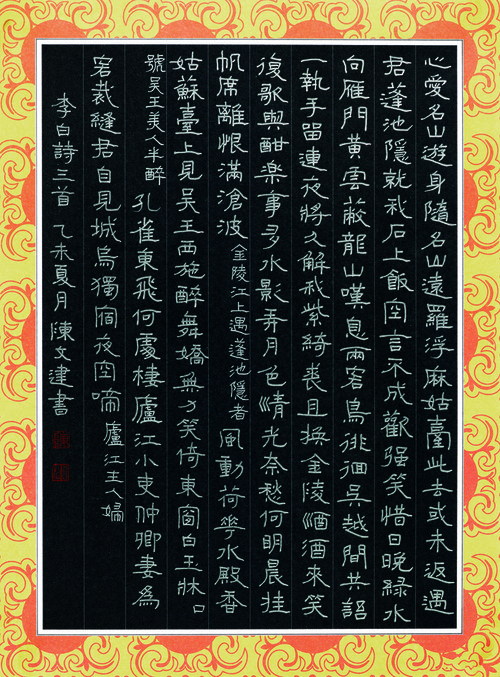 心愛名山遊身隨名山遠羅浮麻姑臺此去或未返遇
君蓬池隱就我石上飯空言不成歡强笑惜日晚緑水
向雁門黃雲蔽龍山嘆息兩客鳥徘徊吳越間共語
一執手留連夜將久解我紫綺裘且換金陵酒酒來笑
復歌與酣楽事多水影弄月色清光奈愁何明晨挂
帆席離恨滿滄波 金陵江上遇蓬池隱者 風動荷花水殿香
姑蘇臺上見吳王西施醉舞嬌無力笑倚東窗白玉牀 口
號吳王美人半醉 孔雀東飛何處棲廬江小吏仲卿妻為
客裁縫君自見城烏獨宿夜空啼 廬江主人婦
李白詩三首 乙未夏月陳文建書